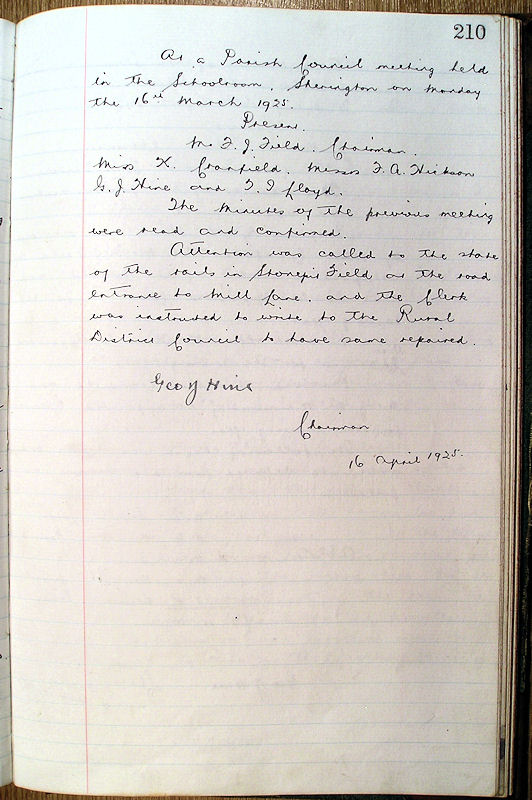 210
At a Parish Council meeting held
in the Schoolroom, Sherington on Monday
the 16th March 1925.
Present.
Mr F. J. Field. Chairman.
Miss K. Cranfield. Messrs F. A. Hickson
G. J. Hine and T. I Lloyd.
The Minutes of the previous meeting
were read and confirmed.
Attention was called to the state
of the rails in Stonepit Field at the road
entrance to Mill Lane. and the Clerk
was instructed to write to the Rural
District Council to have same repaired.
Geo J Hine
Chairman
16 April 1925.